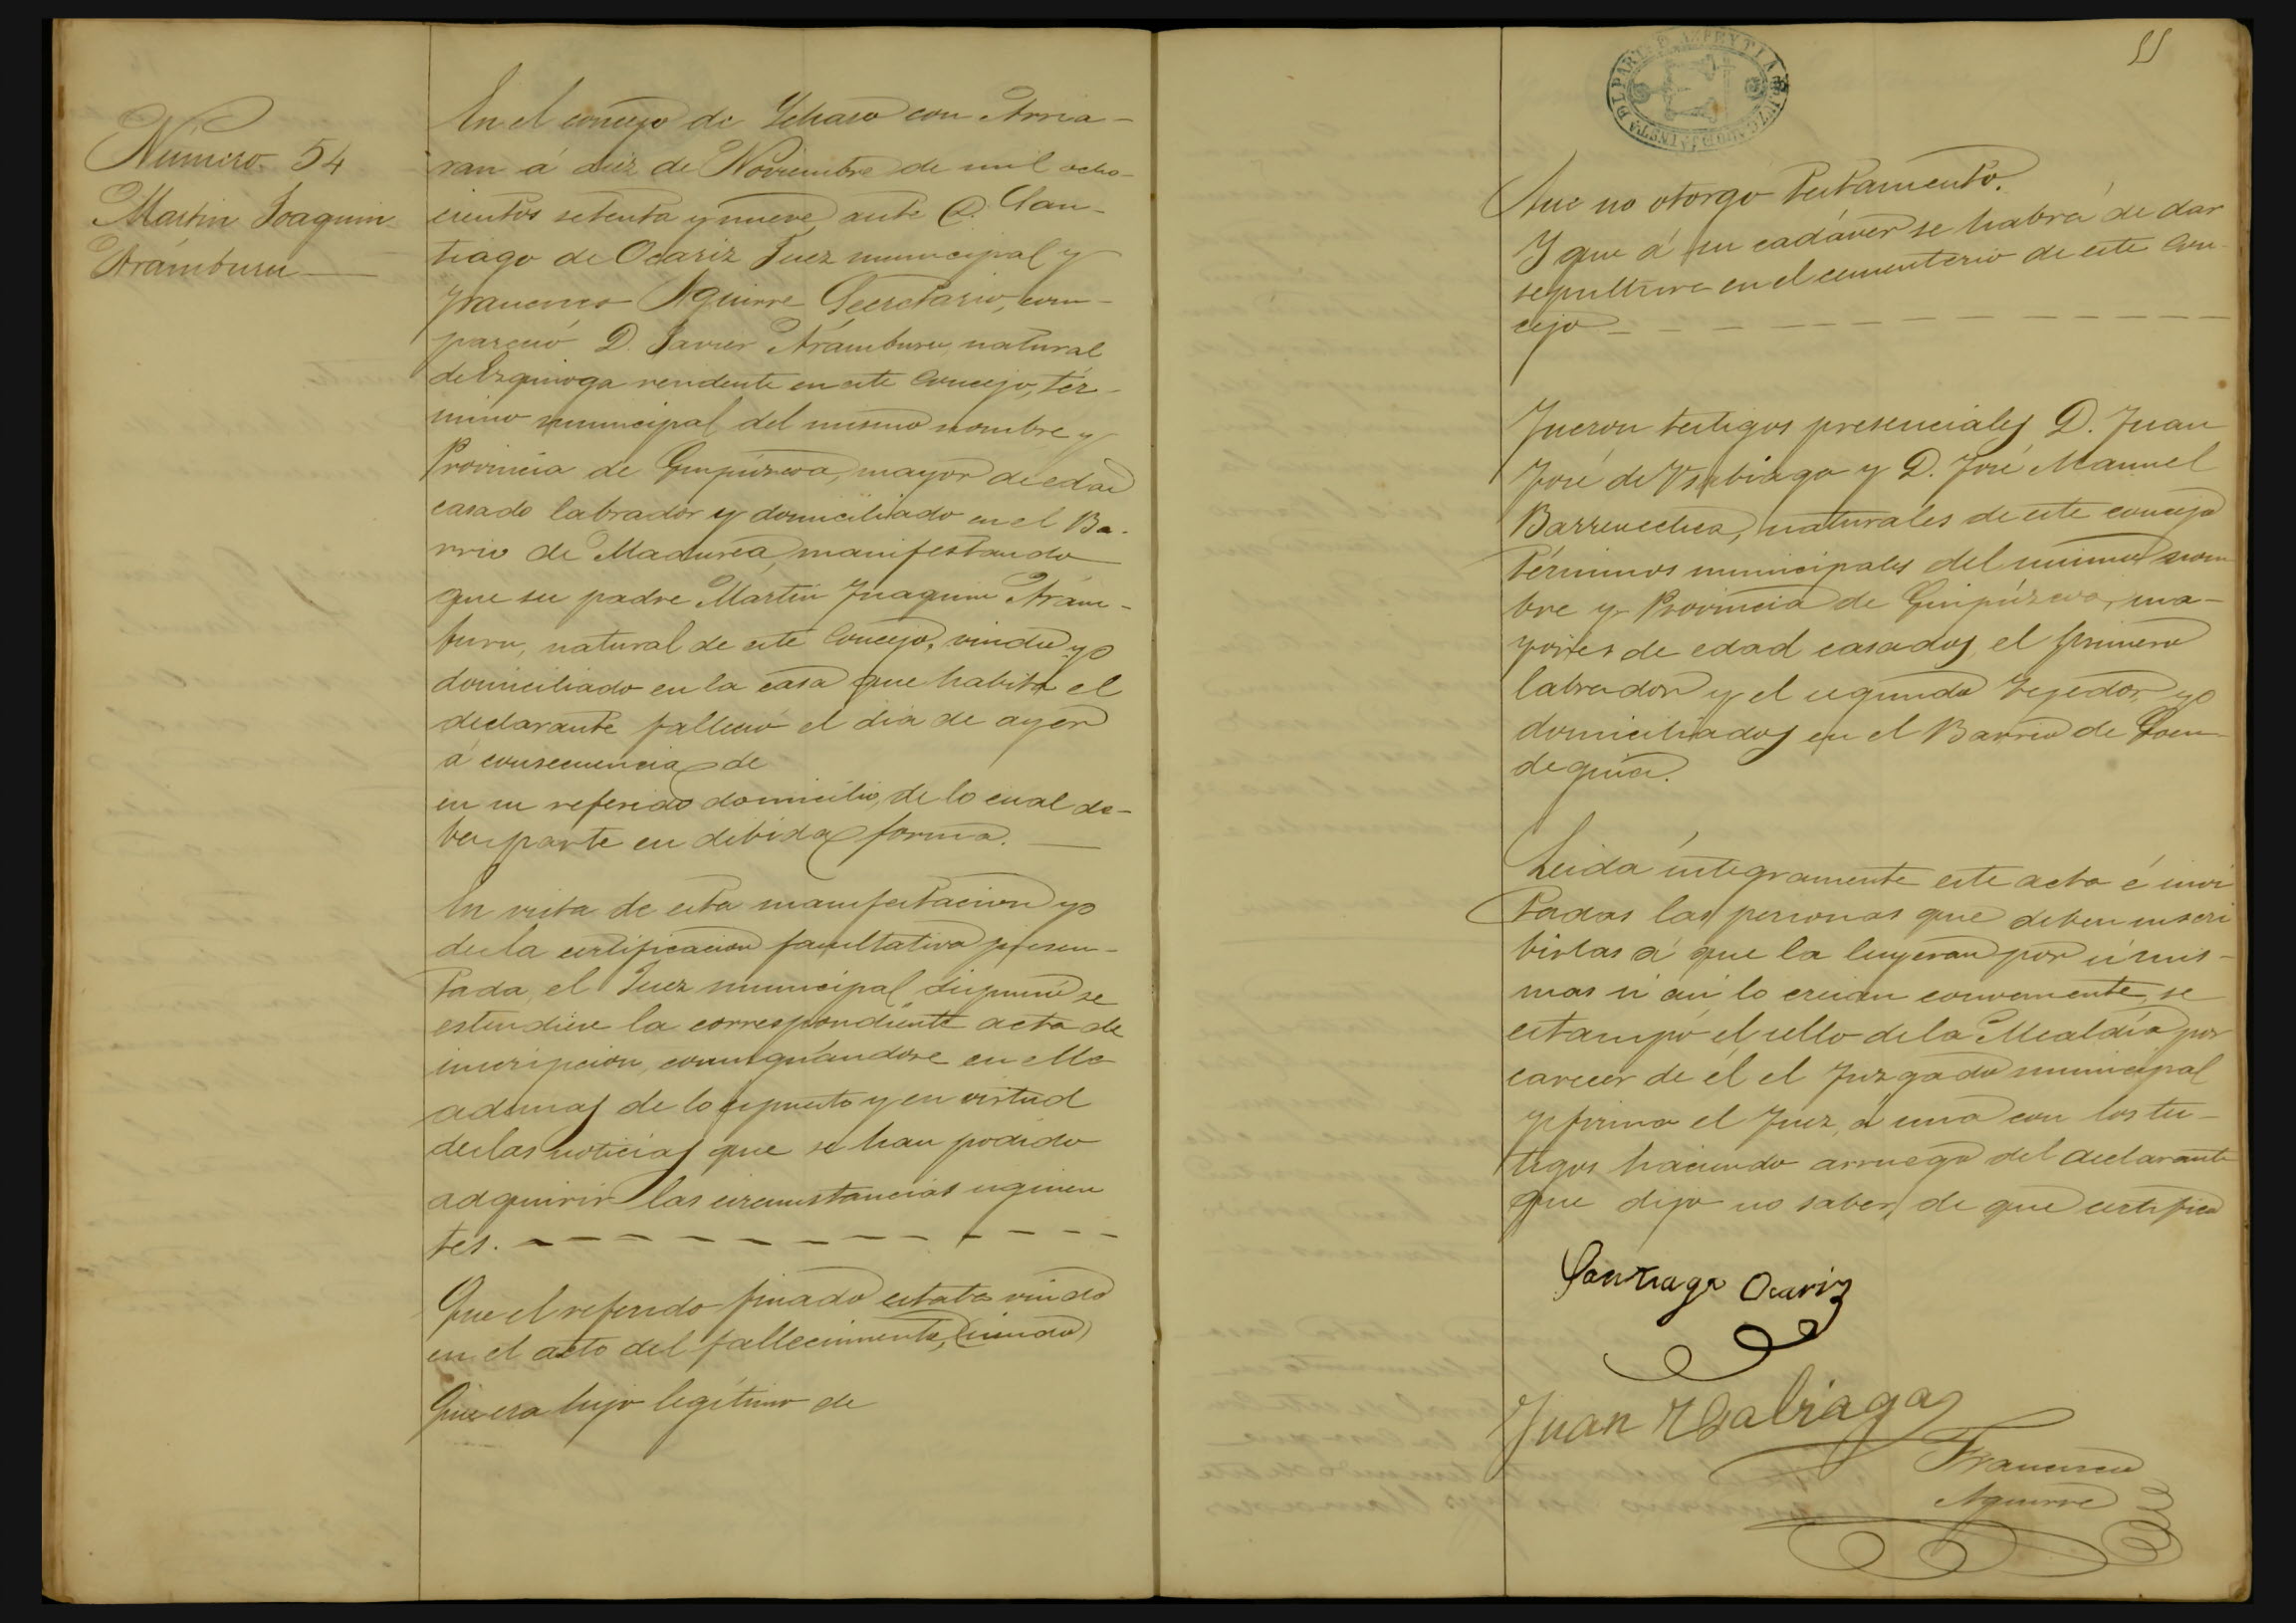 Número 54
Martin Joaquin
Arámburu
En el concejo de Ychaso con Arria-
ran á diez de Noviembre de mil ocho-
cientos setenta y nueve ante D. San-
tiago de Ocariz Juez municipal y
Francisco Aguirre Secretario, com-
pareció D. Javier Arámburu, natural
de Ezquioga residente en este Concejo, tér-
mino municipal del mismo nombre y
Provincia de Guipúzcoa, mayor de edad
casado labrador y domiciliado en el Ba-
rrio de Madurea, manifestando
que su padre Martin Juaquin Arám-
buru, natural de este Concejo, viudo y
domiciliado en la casa que habita el
declarante falleció el dia de ayer
á consecuencia de
en su referido domicilio, de lo cual da-
ba parte en debida forma.
En vista de esta manifestacion y
de la certificacion facultativa presen-
tada, el Juez municipal dispuso se
estendiese la correspondiente acta de
inscripcion, consignándose en ella
ademas de lo espuesto y en virtud
de las noticias que se han podido
adquirir las circunstancias siguien
tes.
Que el referido finado estaba viudo
en el acto del fallecimiento, (viudo)
Que era hijo legítimo de
55
PARTº DE AZPEYTIA
Que no otorgo testamento.
Y que á su cadáver se habrá de dar
sepultura en el cementerio de este Con-
cejo
Fueron testigos presenciales D. Juan
José de Usabiaga y D. José Manuel
Barrenechea, naturales de este concejo
términos municipales del mismo nom
bre y Provincia de Guipúzcoa, ma-
yores de edad casados, el primero
labrador y el segundo tejedor y
domiciliados en el Barrio de
Leida íntegramente este acta é invi
tadas las personas que deben inscri
birlas á que la leyeran por sí mis-
mas si asi lo creian conveniente, se
estampó el sello de la Alcaldía por
carecer de él el Juzgado municipal
y firma el Juez, á una con los tes-
tigos haciendo arruego del declarante
que dijo no saber, de que certifico
Santiago Ocariz
Juan Usabiaga
Francisco
Aguirre